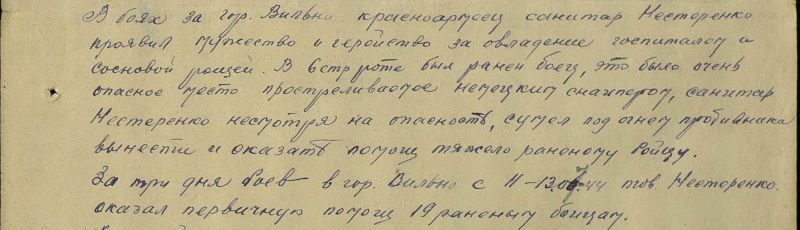 В боях за гор. Вильно красноармеец санитар Нестеренко
проявил мужество и геройство за овладение госпиталем и
сосновой рощей. В 6 стр роте был ранен боец, это было очень
опасное место простреливаемое немецким снайпером, санитар
Нестеренко несмотря на опасность, сумел под огнем противника
вынести и оказать помощь тяжело раненому бойцу.
За три дня боев в гор. Вильно с 11–13.07.44 тов. Нестеренко
оказал первичную помощь 19 раненым бойцам.